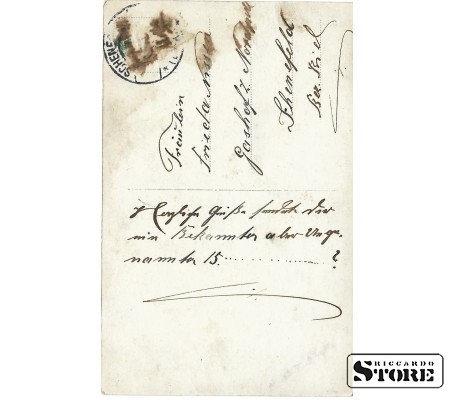 SCHENE
Fräulein
Frieda
Gasthof z.
Schenefeld
Bez. Kiel
Herzliche Grüße sendet Dir
ein Bekannter aber Unge-
nannter 15. .............. ?
RICCARDO
STORE